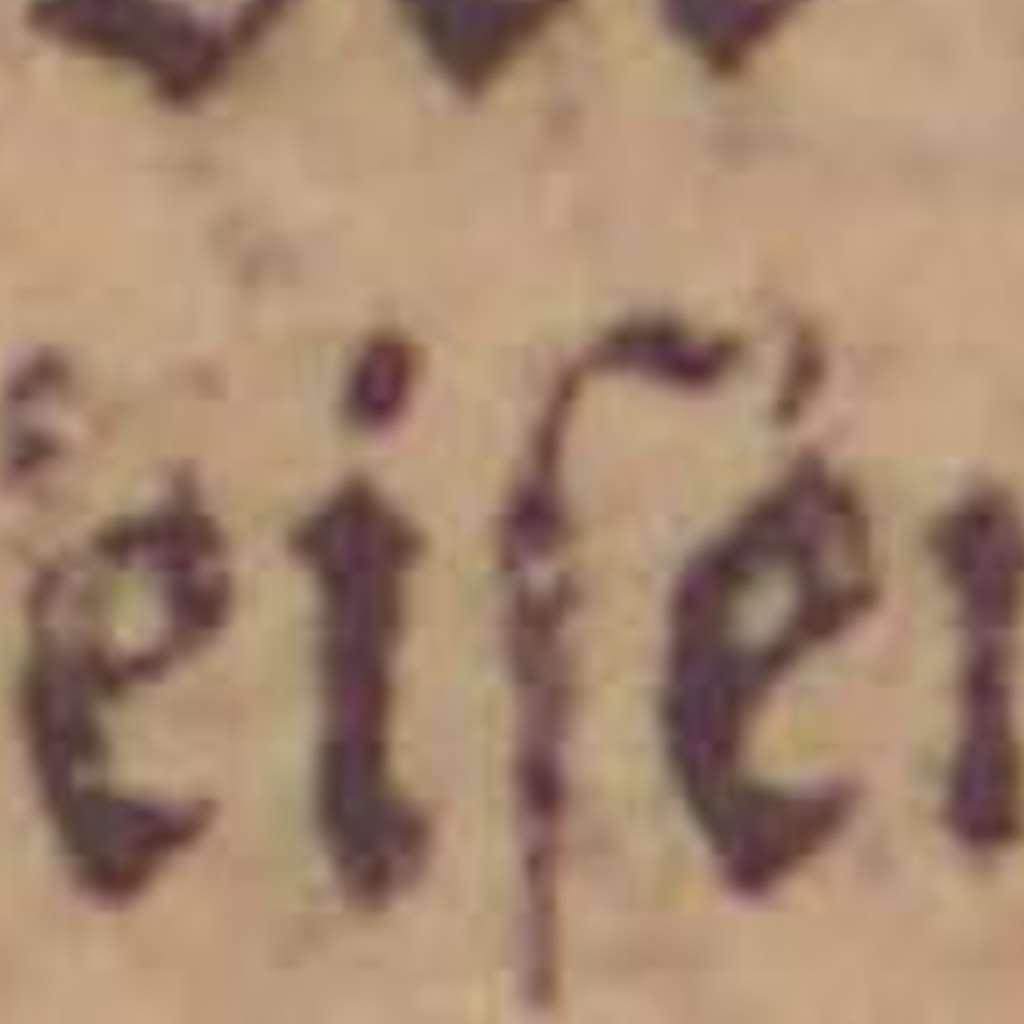 eiſe